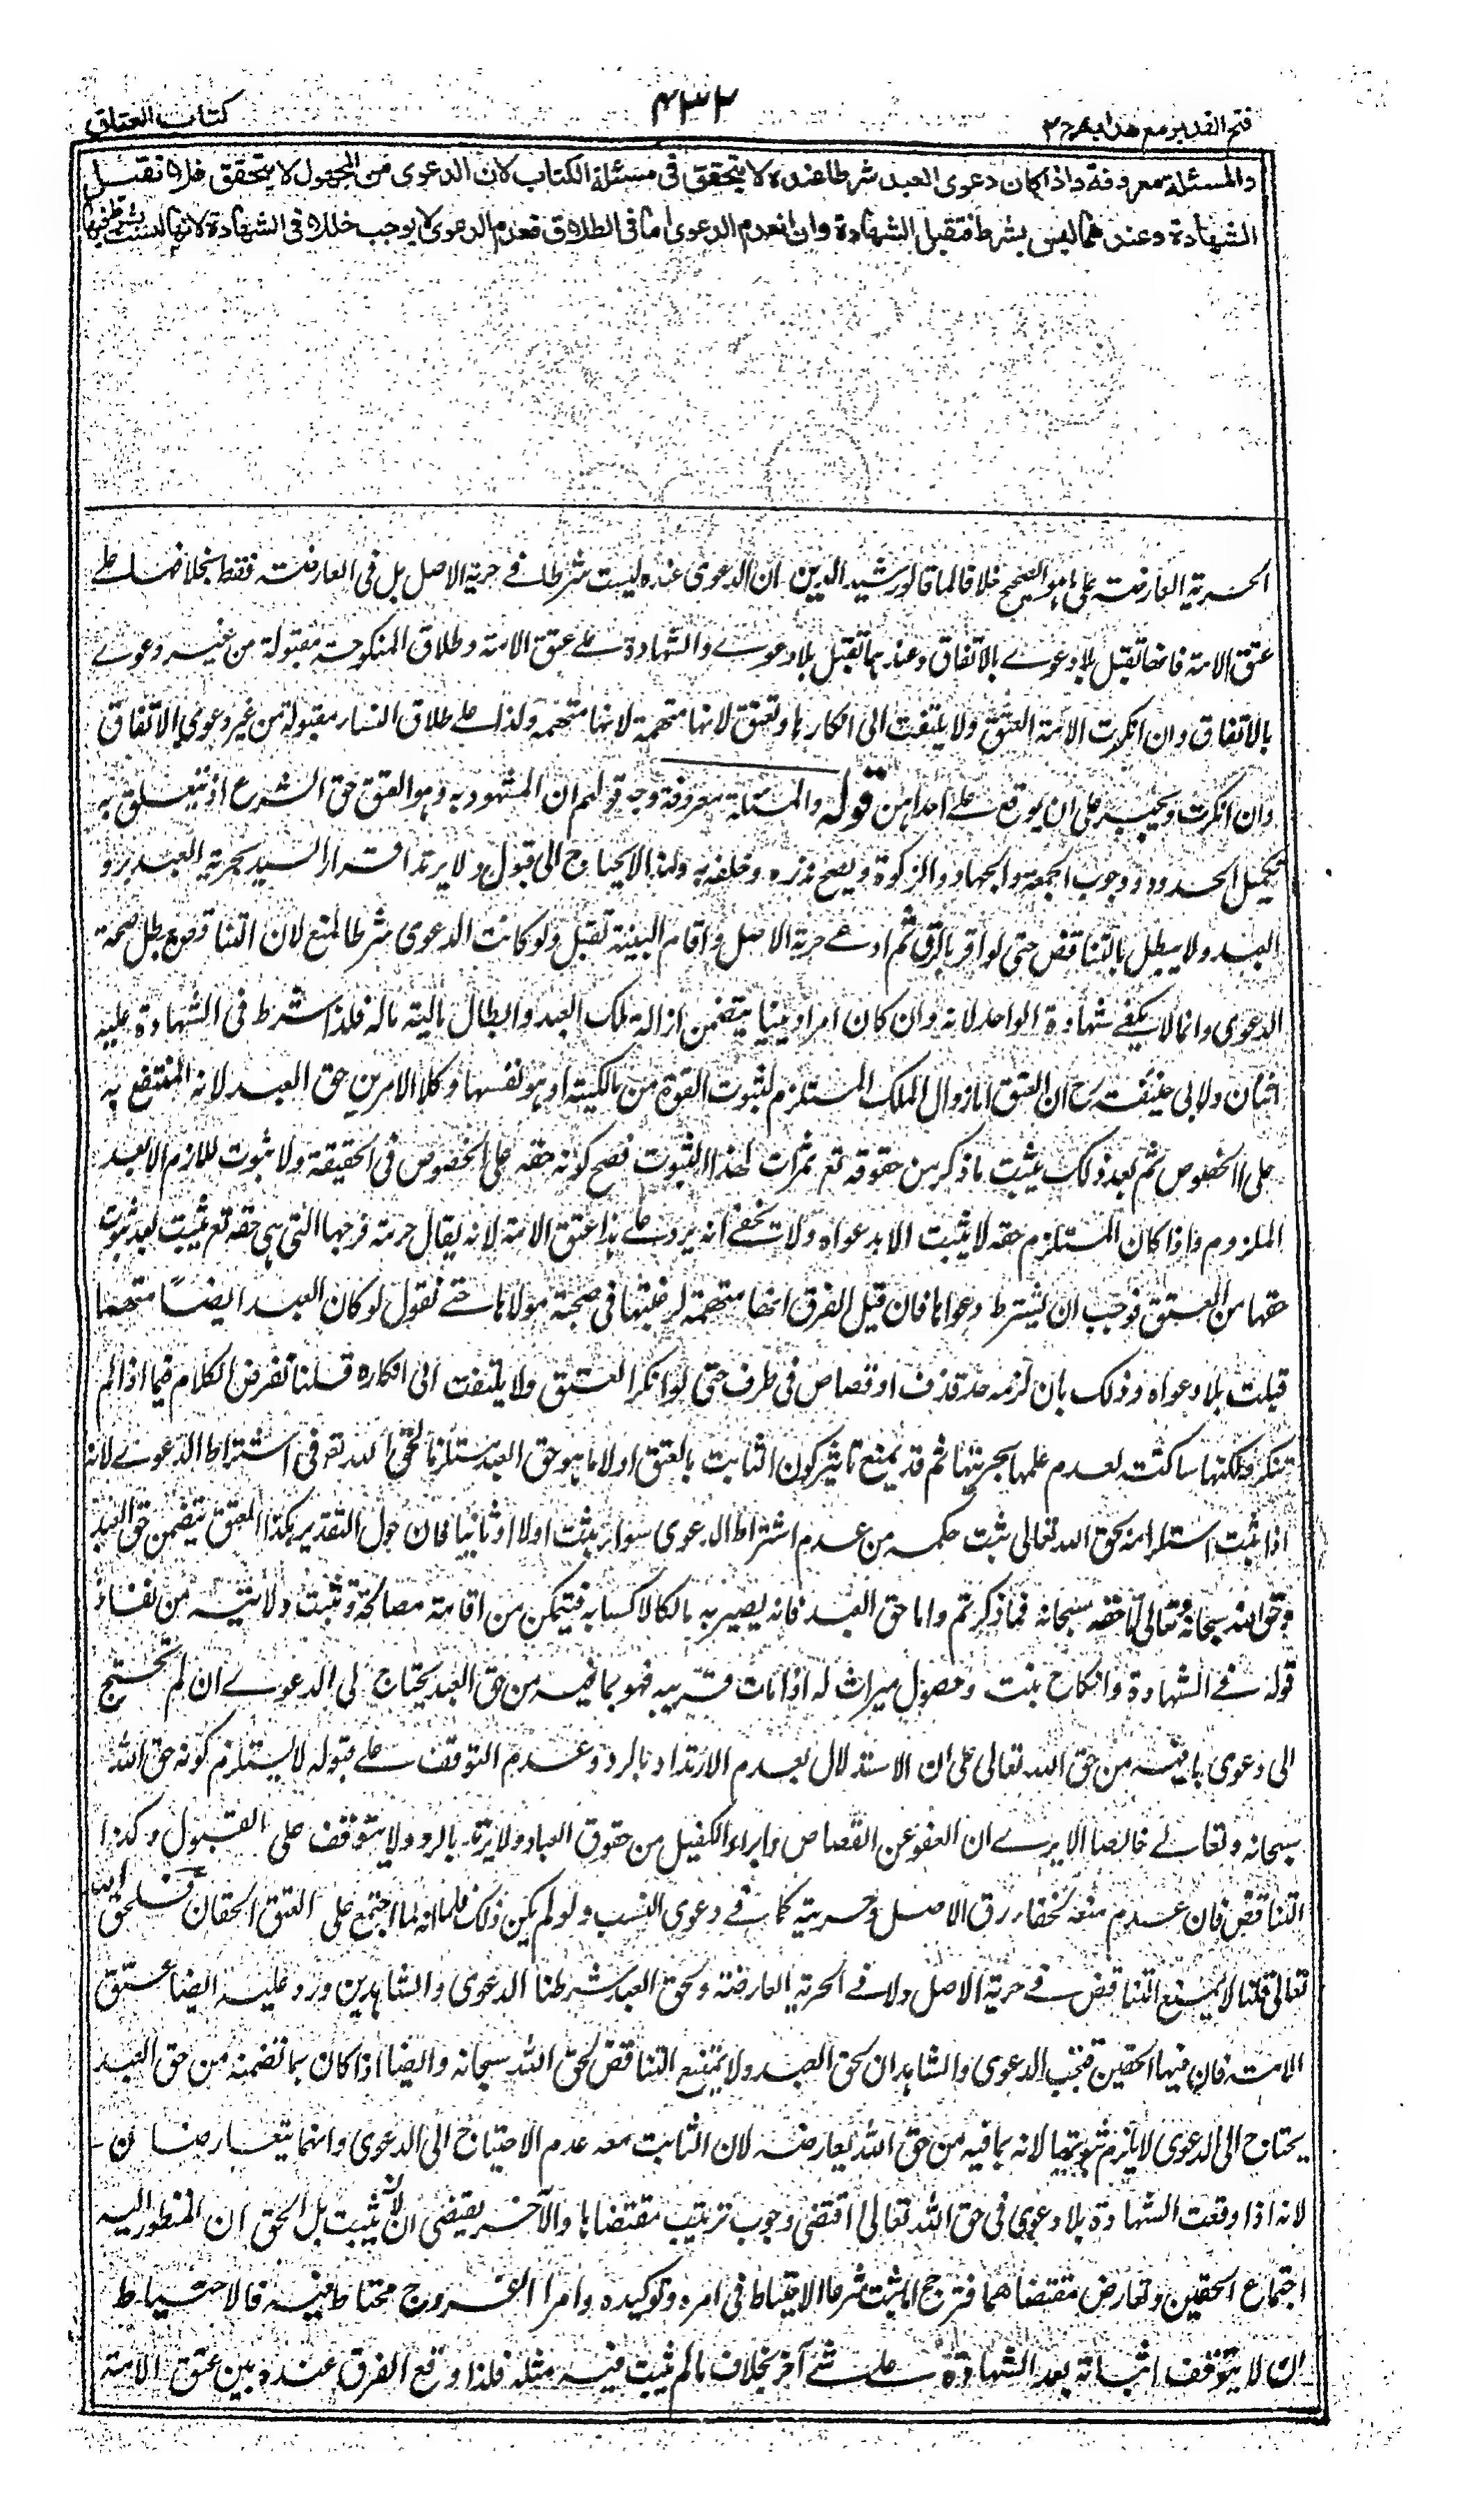 فتح القدير مع هداية ج ٢
٤٣٢
كتاب العتاق
والمسئلة معروفة واذا كان دعوى العبد شرطا عنده لا يتحقق فى مسئلة الكتاب لان الدعوى من المجهول لا يتحقق فلا تقبل
الشهادة وعندهما ليس بشرط فتقبل الشهادة وان انعدم الدعوى اما فى الطلاق فعدم الدعوى لا يوجب خللا فى الشهادة لانها ليست بشرط فيها
الحرية العارضة على ما هو الصحيح خلافا لما قاله رشيد الدين ان الدعوى عنده ليست شرطا فے حرية الاصل بل فى العارضة فقط بخلافها علے
عتق الامة فانها تقبل بلا دعوے بالاتفاق وعندهما تقبل بلا دعوے والشهادة علے عتق الامة وطلاق المنكوحة مقبولة من غير دعوے
بالاتفاق وان انكرت الامة العتق ولا يلتفت الى انكارها وتعتق لانها متهمة لانها متهمة ولذا علے طلاق النساء مقبولة من غير دعوى بالاتفاق
وان انكرت ويجبر على ان يوقع علے احداهن قوله والمسئلة معروفة وجه قولهم ان المشهود به وهو العتق حق الشرع اذ يتعلق به
تكميل الحدود ووجوب الجمعة والجهاد والزكوة ويصح نذره وحلفه به ولهذا لا يحتاج الى قبول ولا يرتد اقرار السيد بحرية العبد برد
العبد ولا يبطل بالتناقض حتى لو اقر بالرق ثم ادعے حرية الاصل واقام البينة تقبل ولو كانت الدعوى شرطا لمنع لان التناقض يبطل صحة
الدعوى وانما لا يكفے شهادة الواحد لانه وان كان امرا دينيا يتضمن ازالة ملك العبد وابطال ماليته ماله فلذا شرط فى الشهادة عليه
اثنان ولابى حنيفة رح ان العتق اما زوال الملك المستلزم لثبوت القوة من مالكيته او هو نفسها وكلا الامرين حق العبد لانه المنتفع به
على الخصوص ثم بعد ذلك يثبت ما ذكر من حقوقه تع ثمرات لهذا الثبوت فصح كونه حقه على الخصوص فى الحقيقة ولا ثبوت للازم الا بعد
الملزوم واذا كان المستلزم حقه لا يثبت الا بدعواه ولا يخفے انه يرد علے هذا عتق الامة لانه يقال حرمة فرجها التى هى حقه تع يثبت بعد ثبوت
حقها من العتق فوجب ان يشترط دعواها فان قيل الفرق انها متهمة لرغبتها فى صحبة مولاها حتے نقول لو كان العبد ايضا متهما
قبلت بلا دعواه وذلك بان لزمه حد قذف او قصاص فى طرف حتى لو انكر العتق ولا يلتفت الى انكاره قلنا نفرض الكلام فيما اذا لم
تنكر ولكنها ساكتة لعدم علمها بحريتها ثم قد يمنع تاثير كون الثابت بالعتق اولا ما هو حق العبد مستلزما لحق الله تع فى اشتراط الدعوے لانه
اذا ثبت استلزامه لحق الله تعالى يثبت حكمه من عدم اشتراط الدعوى سواء يثبت اولا او ثانيا فان حول التقدير هكذا العتق يتضمن حق العبد
وحق الله سبحانه وتعالى اما حقه سبحانه فما ذكرتم واما حق العبد فانه يصير به مالكا لاكسابه فيتمكن من اقامة مصالحه وتثبت ولايته من نفاذ
قوله فے الشهادة وانكاح بنت وحصول ميراث له اذا مات قريبه فهو بما فيه من حق العبد يحتاج الى الدعوے ان لم تحتج
الى دعوى بما فيه من حق الله تعالى على ان الاستدلال بعدم الارتداد بالرد وعدم التوقف علے قبوله لا يستلزم كونه حق الله
سبحانه وتعالے خالصا الا يرے ان العفو عن القصاص وابراء الكفيل من حقوق العباد ولا يرتد بالرد ولا يتوقف على القبول وكذا
التناقض فان عدم منعه لخفاء رق الاصل وحريته كما فے دعوى النسب ولو لم يكن ذلك فلما انه لما اجتمع على العتق الحقان فلحق الله
تعالى قلنا لا يمنع التناقض فے حرية الاصل ولا فے الحرية العارضة ولحق العبد شرطنا الدعوى والشاهدين وورد عليه ايضا عتق
الامة فان فيها الحقين فتجب الدعوى والشاهدان لحق العبد ولا يمنع التناقض لحق الله سبحانه وايضا اذا كان بما تضمنه من حق العبد
يحتاج الى الدعوى لا يلزم لانه بما فيه من حق الله يعارضه لان الثابت معه عدم الاحتياج الى الدعوى وانهما يتعارضان
لانه اذا وقعت الشهادة بلا دعوى فى حق الله تعالى اقتضى وجوب ترتيب مقتضاها والآخر يقتضى ان لا يثبت بل الحق ان المنظور اليه
اجتماع الحقين وتعارض مقتضاهما فترجح ما يثبت شرعا الاحتياط فى امره وتوكيده وامر الفروج محتاط فيه فالاحتياط
ان لا يتوقف اثباته بعد الشهادة علے شے آخر بخلاف ما لم يثبت فيه مثله فلذا وقع الفرق عنده بين عتق الامة